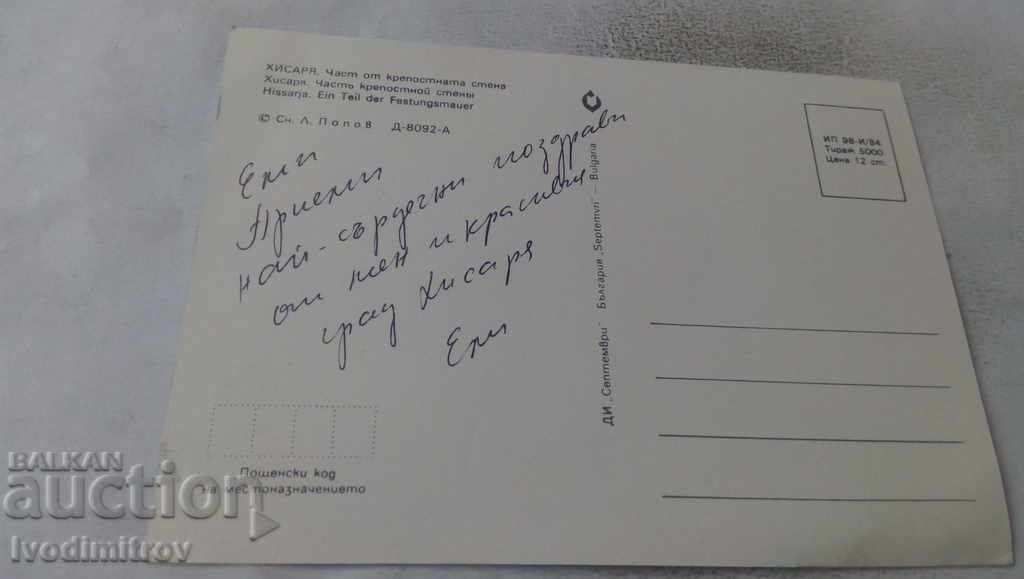 ХИСАРЯ. Част от крепостната стена
Хисаря. Часть крепостной стены
Hissarja. Ein Teil der Festungsmauer
© Сн. Л. Попов Д-8092-А
Ели
Приеми
най-сърдечни поздрави
от мен и красивия
град Хисаря
Ели
Пощенски код
на местоназначението
ДИ „Септември" България „Septemvri" — Bulgaria
ИП 98-И/84
Тираж 5000
Цена 12 ст.
BALKAN
auction
Ivodimitrov